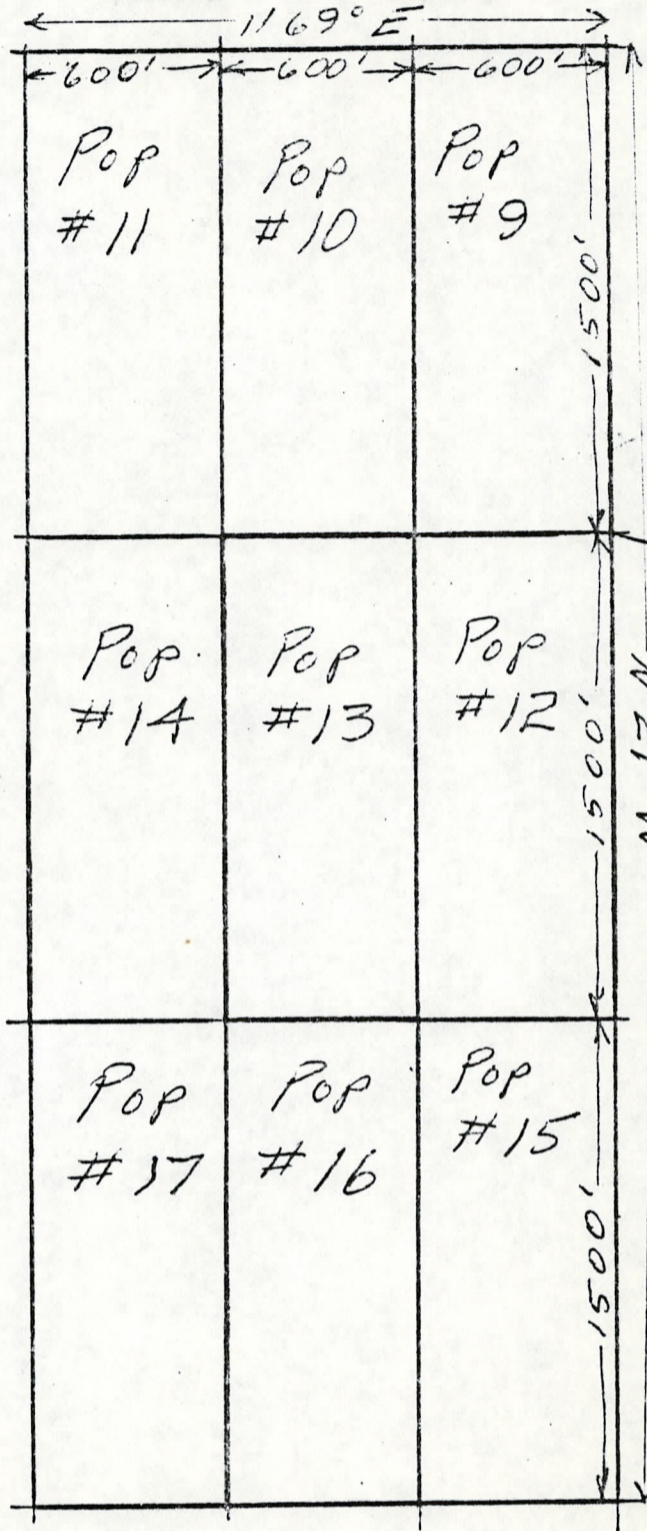 69° E
600' 600' 600'
Pop
#11
Pop
#10
Pop
#9
1500'
Pop
#14
Pop
#13
Pop
#12
1500'
Pop
#17
Pop
#16
Pop
#15
1500'